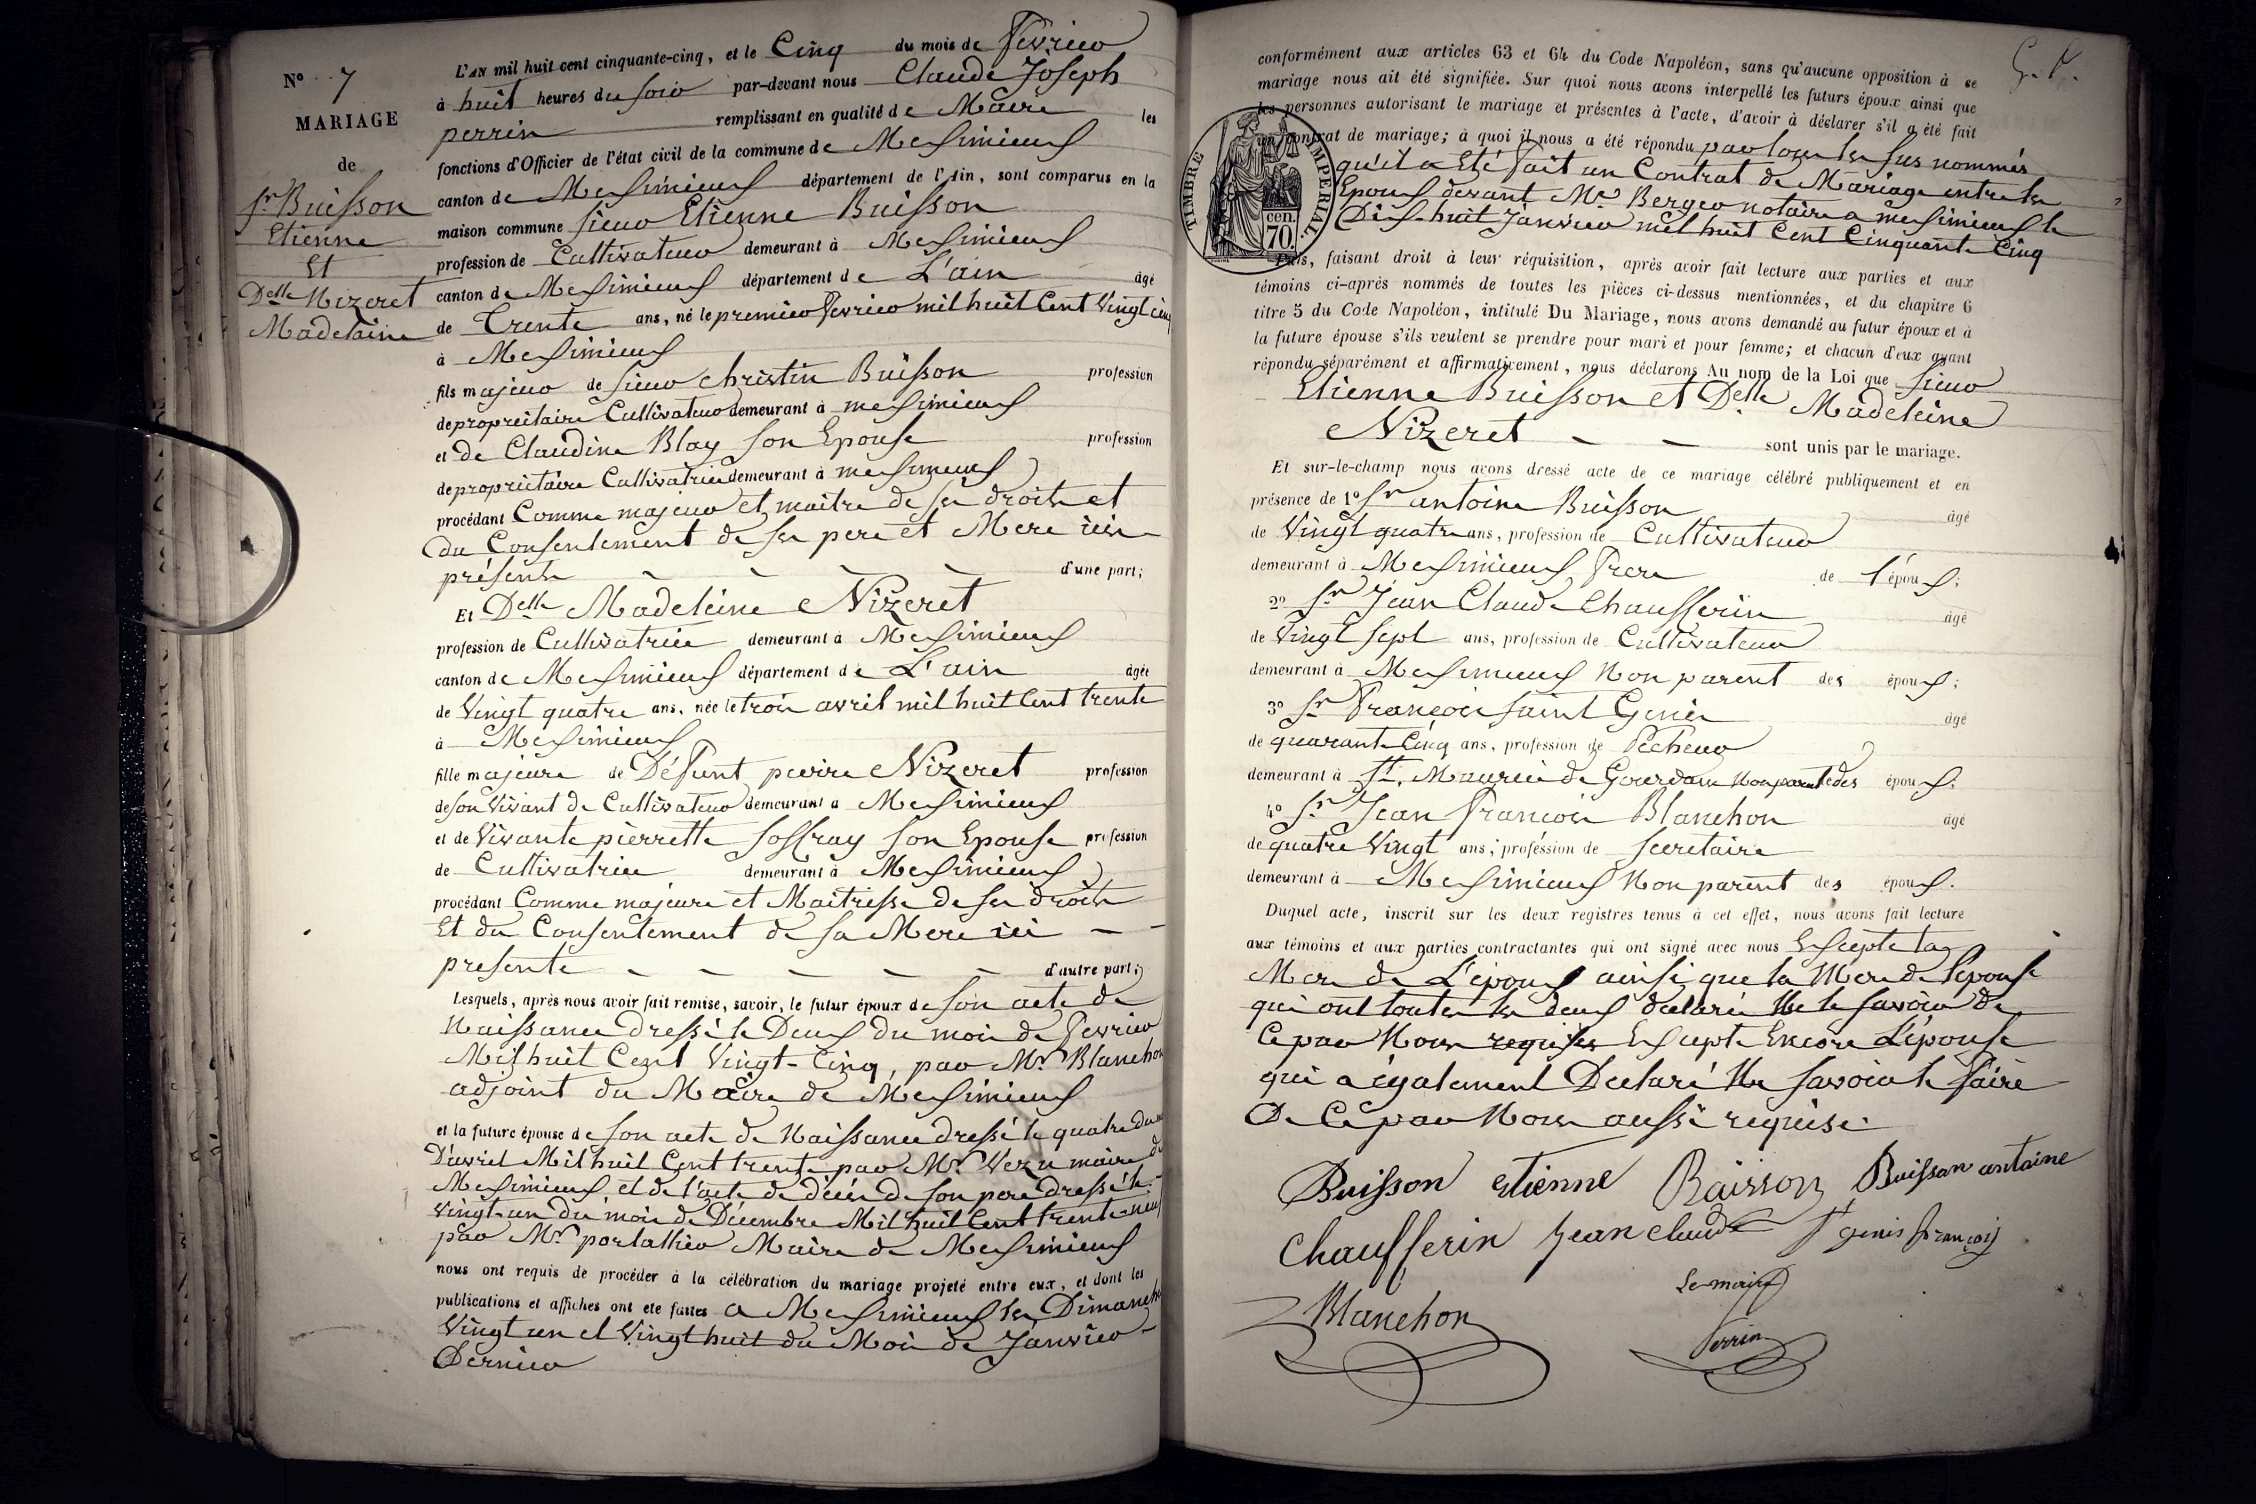 N° 7
MARIAGE
de
Sr Buisson
Etienne
Et
Delle Nizeret
Madelaine
L'AN mil huit cent cinquante-cinq, et le Cinq du mois de Fevrier
à huit heures du soir par-devant nous Claude Joseph
perrin remplissant en qualité de Maire les
fonctions d'Officier de l'état civil de la commune de Meximieux
canton de Meximieux département de l'Ain, sont comparus en la
maison commune sieur Etienne Buisson
profession de Cultivateur demeurant à Meximieux
canton de Meximieux département de L'ain âgé
de Trente ans, né le premier Fevrier mil huit Cent Vingt cinq
à Meximieux
fils majeur de sieur christin Buisson profession
de propriétaire Cultivateur demeurant à meximieux
et de Claudine Blay son Epouse profession
de propriétaire Cultivatrice demeurant à meximieux
procédant Comme majeur et maitre de ses droits et
du Consentement de ses pere et Mere ici
présents d'une part;
Et Delle Madeleine Nizeret
profession de Cultivatrice demeurant à Meximieux
canton de Meximieux département de L'ain âgée
de Vingt quatre ans, née le trois avril mil huit Cent trente
à Meximieux
fille majeure de Défunt pierre Nizeret profession
de son Vivant de Cultivateur demeurant à Meximieux
et de Vivante pierrette Soffray son Epouse profession
de Cultivatrice demeurant à Meximieux
procédant Comme majeure et Maitresse de ses droits
Et du Consentement de sa Mere ici
presente d'autre part;
Lesquels, après nous avoir fait remise, savoir, le futur époux de son acte de
Naissance dressé le Deux du mois de Fevrier
Mil huit Cent Vingt-Cinq, par Mr Blanchon
adjoint du Maire de Meximieux
et la future épouse de son acte de Naissance dressé le quatre du
D'avril Mil huit Cent trente par Mr Vezu maire de
Meximieux et de l'acte de décès de son pere dressé le
vingt-un du mois de Décembre Mil huit Cent trente-neuf
par Mr portallier Maire de Meximieux
nous ont requis de procéder à la célébration du mariage projeté entre eux, et dont les
publications et affiches ont été faites a Meximieux les Dimanche
Vingt un et Vingt huit du Mois de Janvier
Dernier
conformément aux articles 63 et 64 du Code Napoléon, sans qu'aucune opposition à ce
mariage nous ait été signifiée. Sur quoi nous avons interpellé les futurs époux ainsi que
les personnes autorisant le mariage et présentes à l'acte, d'avoir à déclarer s'il a été fait
un contrat de mariage; à quoi il nous a été répondu par tous les sus nommés
qu'il a Eté fait un Contrat de Mariage entre les
Epoux devant Me Berger notaire a meximieux le
Dix-huit Janvier mil huit Cent Cinquante Cinq
TIMBRE IMPERIAL
cen.
70.
Puis, faisant droit à leur réquisition, après avoir fait lecture aux parties et aux
témoins ci-après nommés de toutes les pièces ci-dessus mentionnées, et du chapitre 6
titre 5 du Code Napoléon, intitulé Du Mariage, nous avons demandé au futur époux et à
la future épouse s'ils veulent se prendre pour mari et pour femme; et chacun d'eux ayant
répondu séparément et affirmativement, nous déclarons Au nom de la Loi que sieur
Etienne Buisson et Delle Madeleine
Nizeret sont unis par le mariage.
Et sur-le-champ nous avons dressé acte de ce mariage célébré publiquement et en
présence de 1° Sr antoine Buisson âgé
de Vingt quatre ans, profession de Cultivateur
demeurant à Meximieux Frere de l'époux;
2° Sr Jean Claude Chaufferin âgé
de Vingt sept ans, profession de Cultivateur
demeurant à Meximieux Non parent des époux;
3° Sr François saint Genis âgé
de quarante Cinq ans, profession de Pêcheur
demeurant à St. Maurice de Gourdans Non parent des époux;
4° Sr Jean François Blanchon âgé
de quatre Vingt ans, profession de secretaire
demeurant à Meximieux Non parent des époux.
Duquel acte, inscrit sur les deux registres tenus à cet effet, nous avons fait lecture
aux témoins et aux parties contractantes qui ont signé avec nous Excepté la
Mere de L'époux ainsi que la Mere de l'epouse
qui ont toutes les deux déclaré Ne le savoir de
Ce par Nous requises Excepté Encore L'épouse
qui a également Déclaré Ne savoir le faire
De Ce par Nous aussi requise
Buisson etienne Buisson Buissan antoine
Chaufferin jean claude st genis françois
Blanchon
Le maire
Perrin